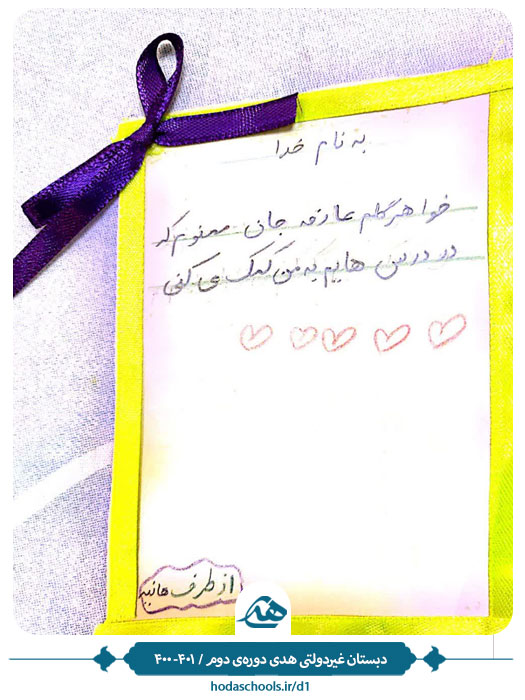 به نام خدا
خواهر گلم عارفه جان ممنونم که
در درس هایم به من کمک می کنی
از طرف هانیه
هدی
دبستان غیردولتی هدی دوره‌ی دوم / ۴۰۱-۴۰۰
hodaschools.ir/d1